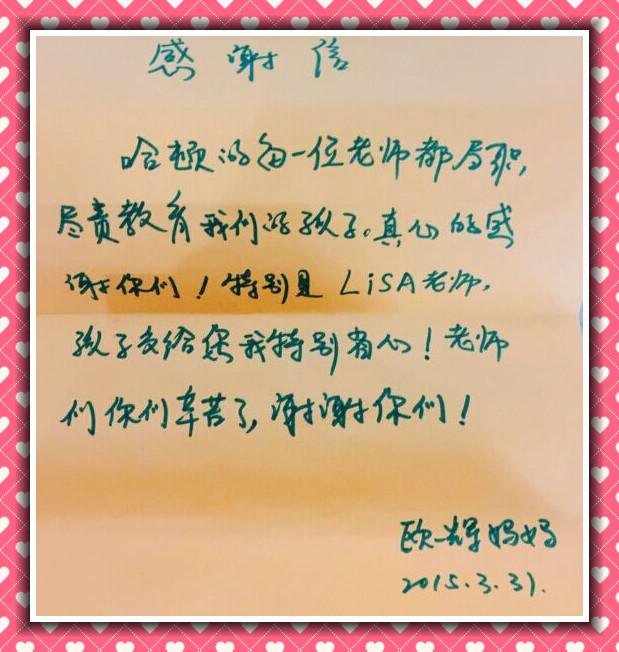 感谢信
哈顿的每一位老师都尽职,
尽责教育我们的孩子。真心的感
谢你们！特别是LiSA老师,
孩子交给您我特别省心！老师
们你们辛苦了,谢谢你们！
欧辉妈妈
2015.3.31.